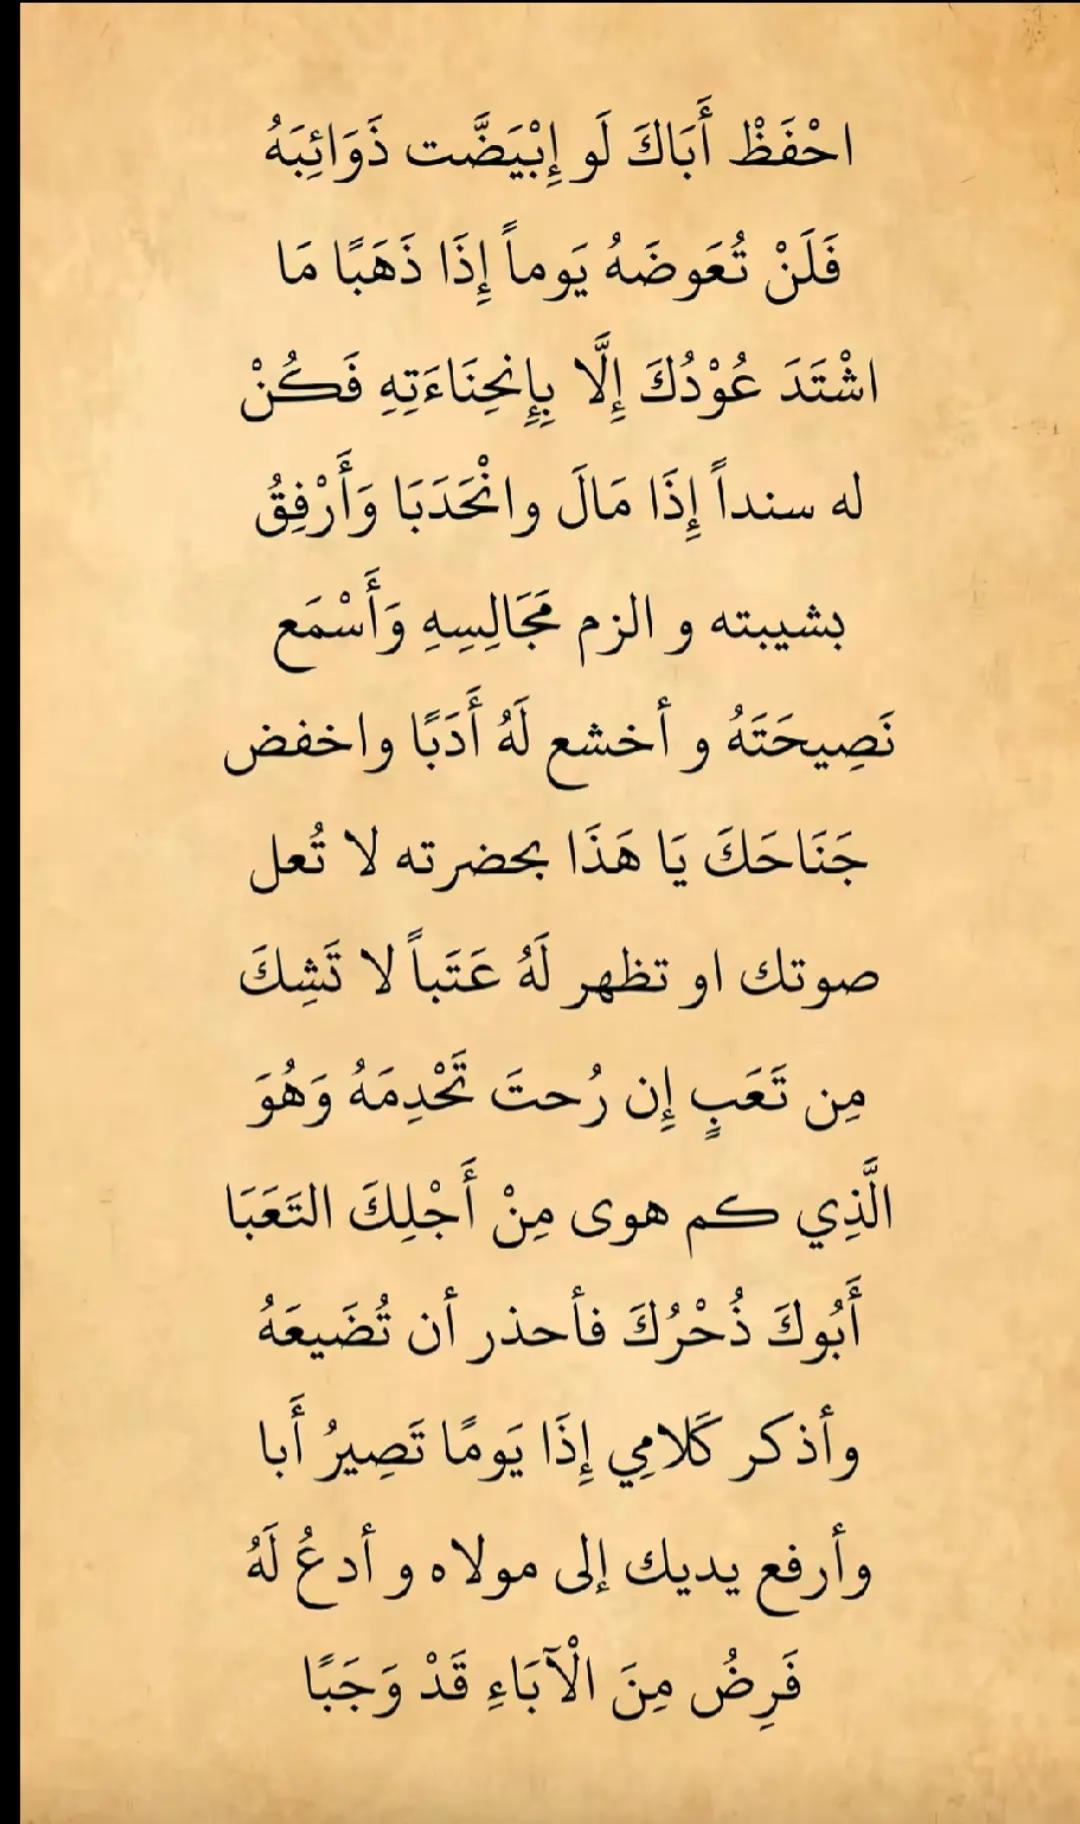 احْفَظْ أَبَاكَ لَو إِبْيَضَّت ذَوَائِبَهُ
فَلَنْ تُعَوضَهُ يَوماً إِذَا ذَهَبًا مَا
اشْتَدَ عُوْدُكَ إِلَّا بِإِنحِنَاءَتِهِ فَكُنْ
له سنداً إِذَا مَالَ وانْحَدَبَا وَأَرْفِقُ
بشيبته و الزم مَجَالِسِهِ وَأَسْمَع
نَصِيحَتَهُ و أخشع لَهُ أَدَبًا واخفض
جَنَاحَكَ يَا هَذَا بحضرته لا تُعل
صوتك او تظهر لَهُ عَتَباً لا تَشِكَ
مِن تَعَبٍ إِن رُحتَ تَحْدِمَهُ وَهُوَ
الَّذِي كم هوى مِنْ أَجْلِكَ التَعَبَا
أَبُوكَ ذُحْرُكَ فأحذر أن تُضَيعَهُ
وأذكر كَلامِي إِذَا يَومًا تَصِيرُ أَبا
وأرفع يديك إلى مولاه و أدعُ لَهُ
فَرِضُ مِنَ الْآبَاءِ قَدْ وَجَبًا